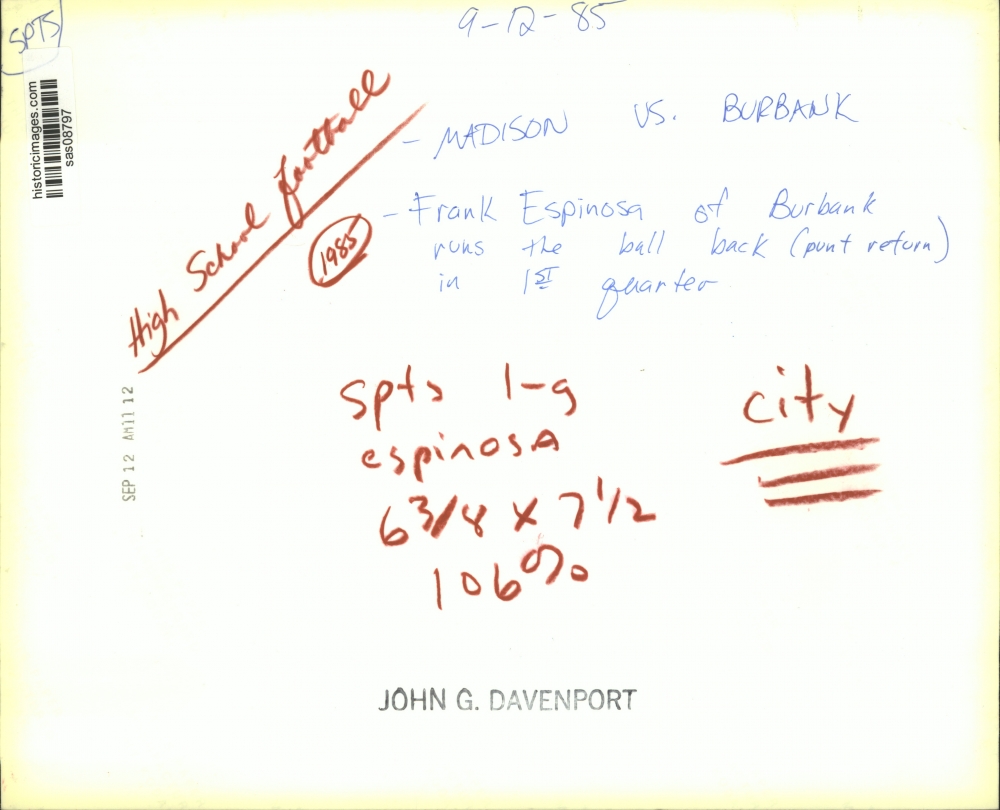 SPTS
9-12-85
historicimages.com
sas08797
High School football
1985
- MADISON VS. BURBANK
- Frank Espinosa of Burbank
runs the ball back (punt return)
in 1ST quarter
SEP 12 AM11 12
spts 1-g
espinosA
6 3/8 x 7 1/2
106%
city
JOHN G. DAVENPORT